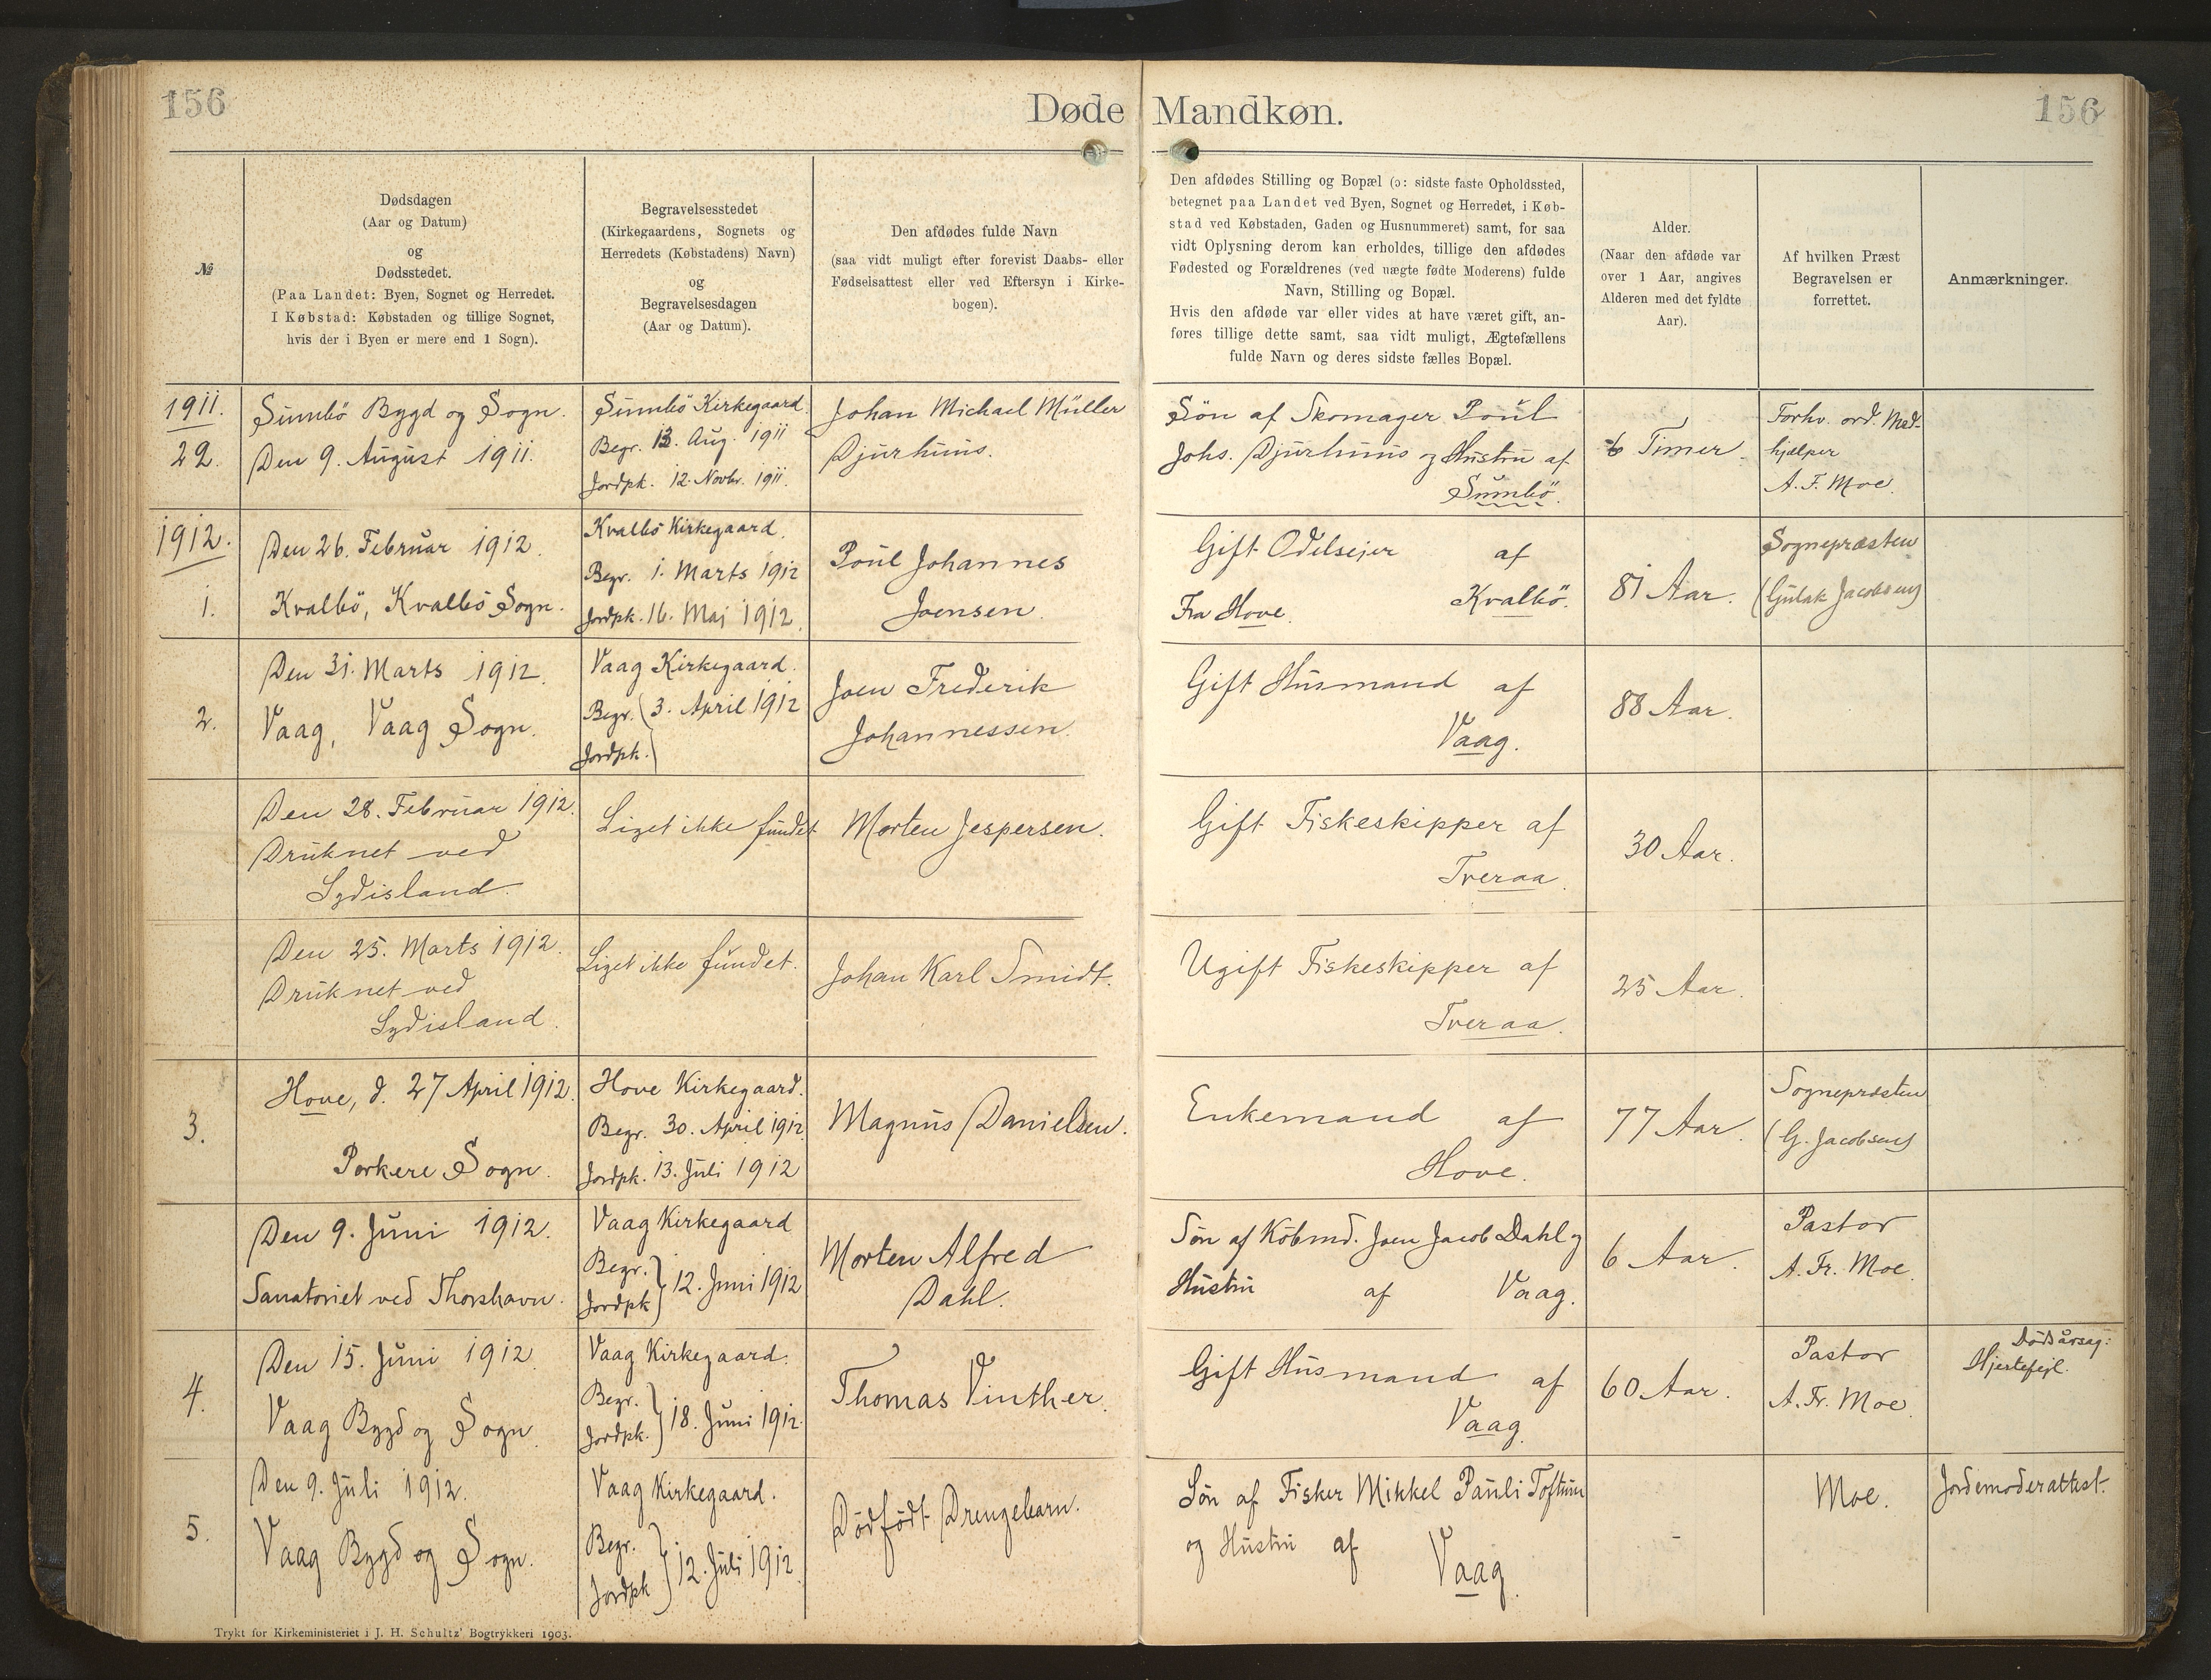 156
Døde Mandkøn.
156
№
Dødsdagen
(Aar og Datum)
og
Dødsstedet.
(Paa Landet: Byen, Sognet og Herredet.
I Købstad: Købstaden og tillige Sognet,
hvis der i Byen er mere end 1 Sogn).
Begravelsesstedet
(Kirkegaardens, Sognets og
Herredets (Købstadens) Navn)
og
Begravelsesdagen
(Aar og Datum).
Den afdødes fulde Navn
(saa vidt muligt efter forevist Daabs- eller
Fødselsattest eller ved Eftersyn i Kirke-
bogen).
Den afdødes Stilling og Bopæl (ɔ: sidste faste Opholdssted,
betegnet paa Landet ved Byen, Sognet og Herredet, i Køb-
stad ved Købstaden, Gaden og Husnummeret) samt, for saa
vidt Oplysning derom kan erholdes, tillige den afdødes
Fødested og Forældrenes (ved uægte fødte Moderens) fulde
Navn, Stilling og Bopæl.
Hvis den afdøde var eller vides at have været gift, an-
føres tillige dette samt, saa vidt muligt, Ægtefællens
fulde Navn og deres sidste fælles Bopæl.
Alder.
(Naar den afdøde var
over 1 Aar, angives
Alderen med det fyldte
Aar).
Af hvilken Præst
Begravelsen er
forrettet.
Anmærkninger.
1911.
22.
Sumbö Bygd og Sogn.
Den 9. August 1911.
Sumbö Kirkegaard
Begr. 13. Aug. 1911
Jordpk. 12. Novbr. 1911.
Johan Michael Müller
Djurhuus.
Sön af Skomager Poul
Johs. Djurhuus og Hustru af
Sumbö.
6 Timer.
Forhv. ord. Med-
hjælper
A. F. Moe.
1912.
1.
Den 26. Februar 1912.
Kvalbö, Kvalbö Sogn.
Kvalbö Kirkegaard.
Begr. 1. Marts 1912
Jordpk. 16. Maj 1912.
Poul Johannes
Joensen.
Gift Odelsejer af
Fra Hove. Kvalbö.
81 Aar.
Sognepræsten
(Gulak Jacobsen)
2.
Den 31. Marts 1912.
Vaag, Vaag Sogn.
Vaag Kirkegaard.
Begr. 3. April 1912
Jordpk.
Joen Frederik
Johannessen.
Gift Husmand af
Vaag.
88 Aar.
Den 28. Februar 1912.
Druknet ved
Sydisland.
Liget ikke fundet
Morten Jespersen.
Gift Fiskeskipper af
Tveraa.
30 Aar.
Den 25. Marts 1912.
Druknet ved
Sydisland.
Liget ikke fundet.
Johan Karl Smidt.
Ugift Fiskeskipper af
Tveraa.
25 Aar.
3.
Hove, d. 27 April 1912.
Porkere Sogn.
Hove Kirkegaard.
Begr. 30. April 1912
Jordpk. 13. Juli 1912
Magnus Danielsen.
Enkemand af
Hove.
77 Aar.
Sognepræsten
(G. Jacobsen)
Den 9. Juni 1912.
Sanatoriet ved Thorshavn.
Vaag Kirkegaard
Begr.
Jordpk } 12. Juni 1912
Morten Alfred
Dahl.
Søn af Købmd. Joen Jacob Dahl og
Hustru af Vaag.
6 Aar.
Pastor
A. Fr. Moe.
4.
Den 15. Juni 1912.
Vaag Bygd og Sogn.
Vaag Kirkegaard.
Begr.
Jordpk. } 18. Juni 1912.
Thomas Vinther.
Gift Husmand af
Vaag.
60 Aar.
Pastor
A. Fr. Moe.
Dødsårsag:
Hjertefejl.
5.
Den 9. Juli 1912.
Vaag Bygd og Sogn.
Vaag Kirkegaard.
Begr.
Jordpk } 12. Juli 1912.
Dödfödt Drengebarn.
Sön af Fisker Mikkel Pauli Toftum
og Hustru af
Vaag.
-
Moe.
Jordemoderattest.
Trykt for Kirkeministeriet i J. H. Schultz' Bogtrykkeri 1903.